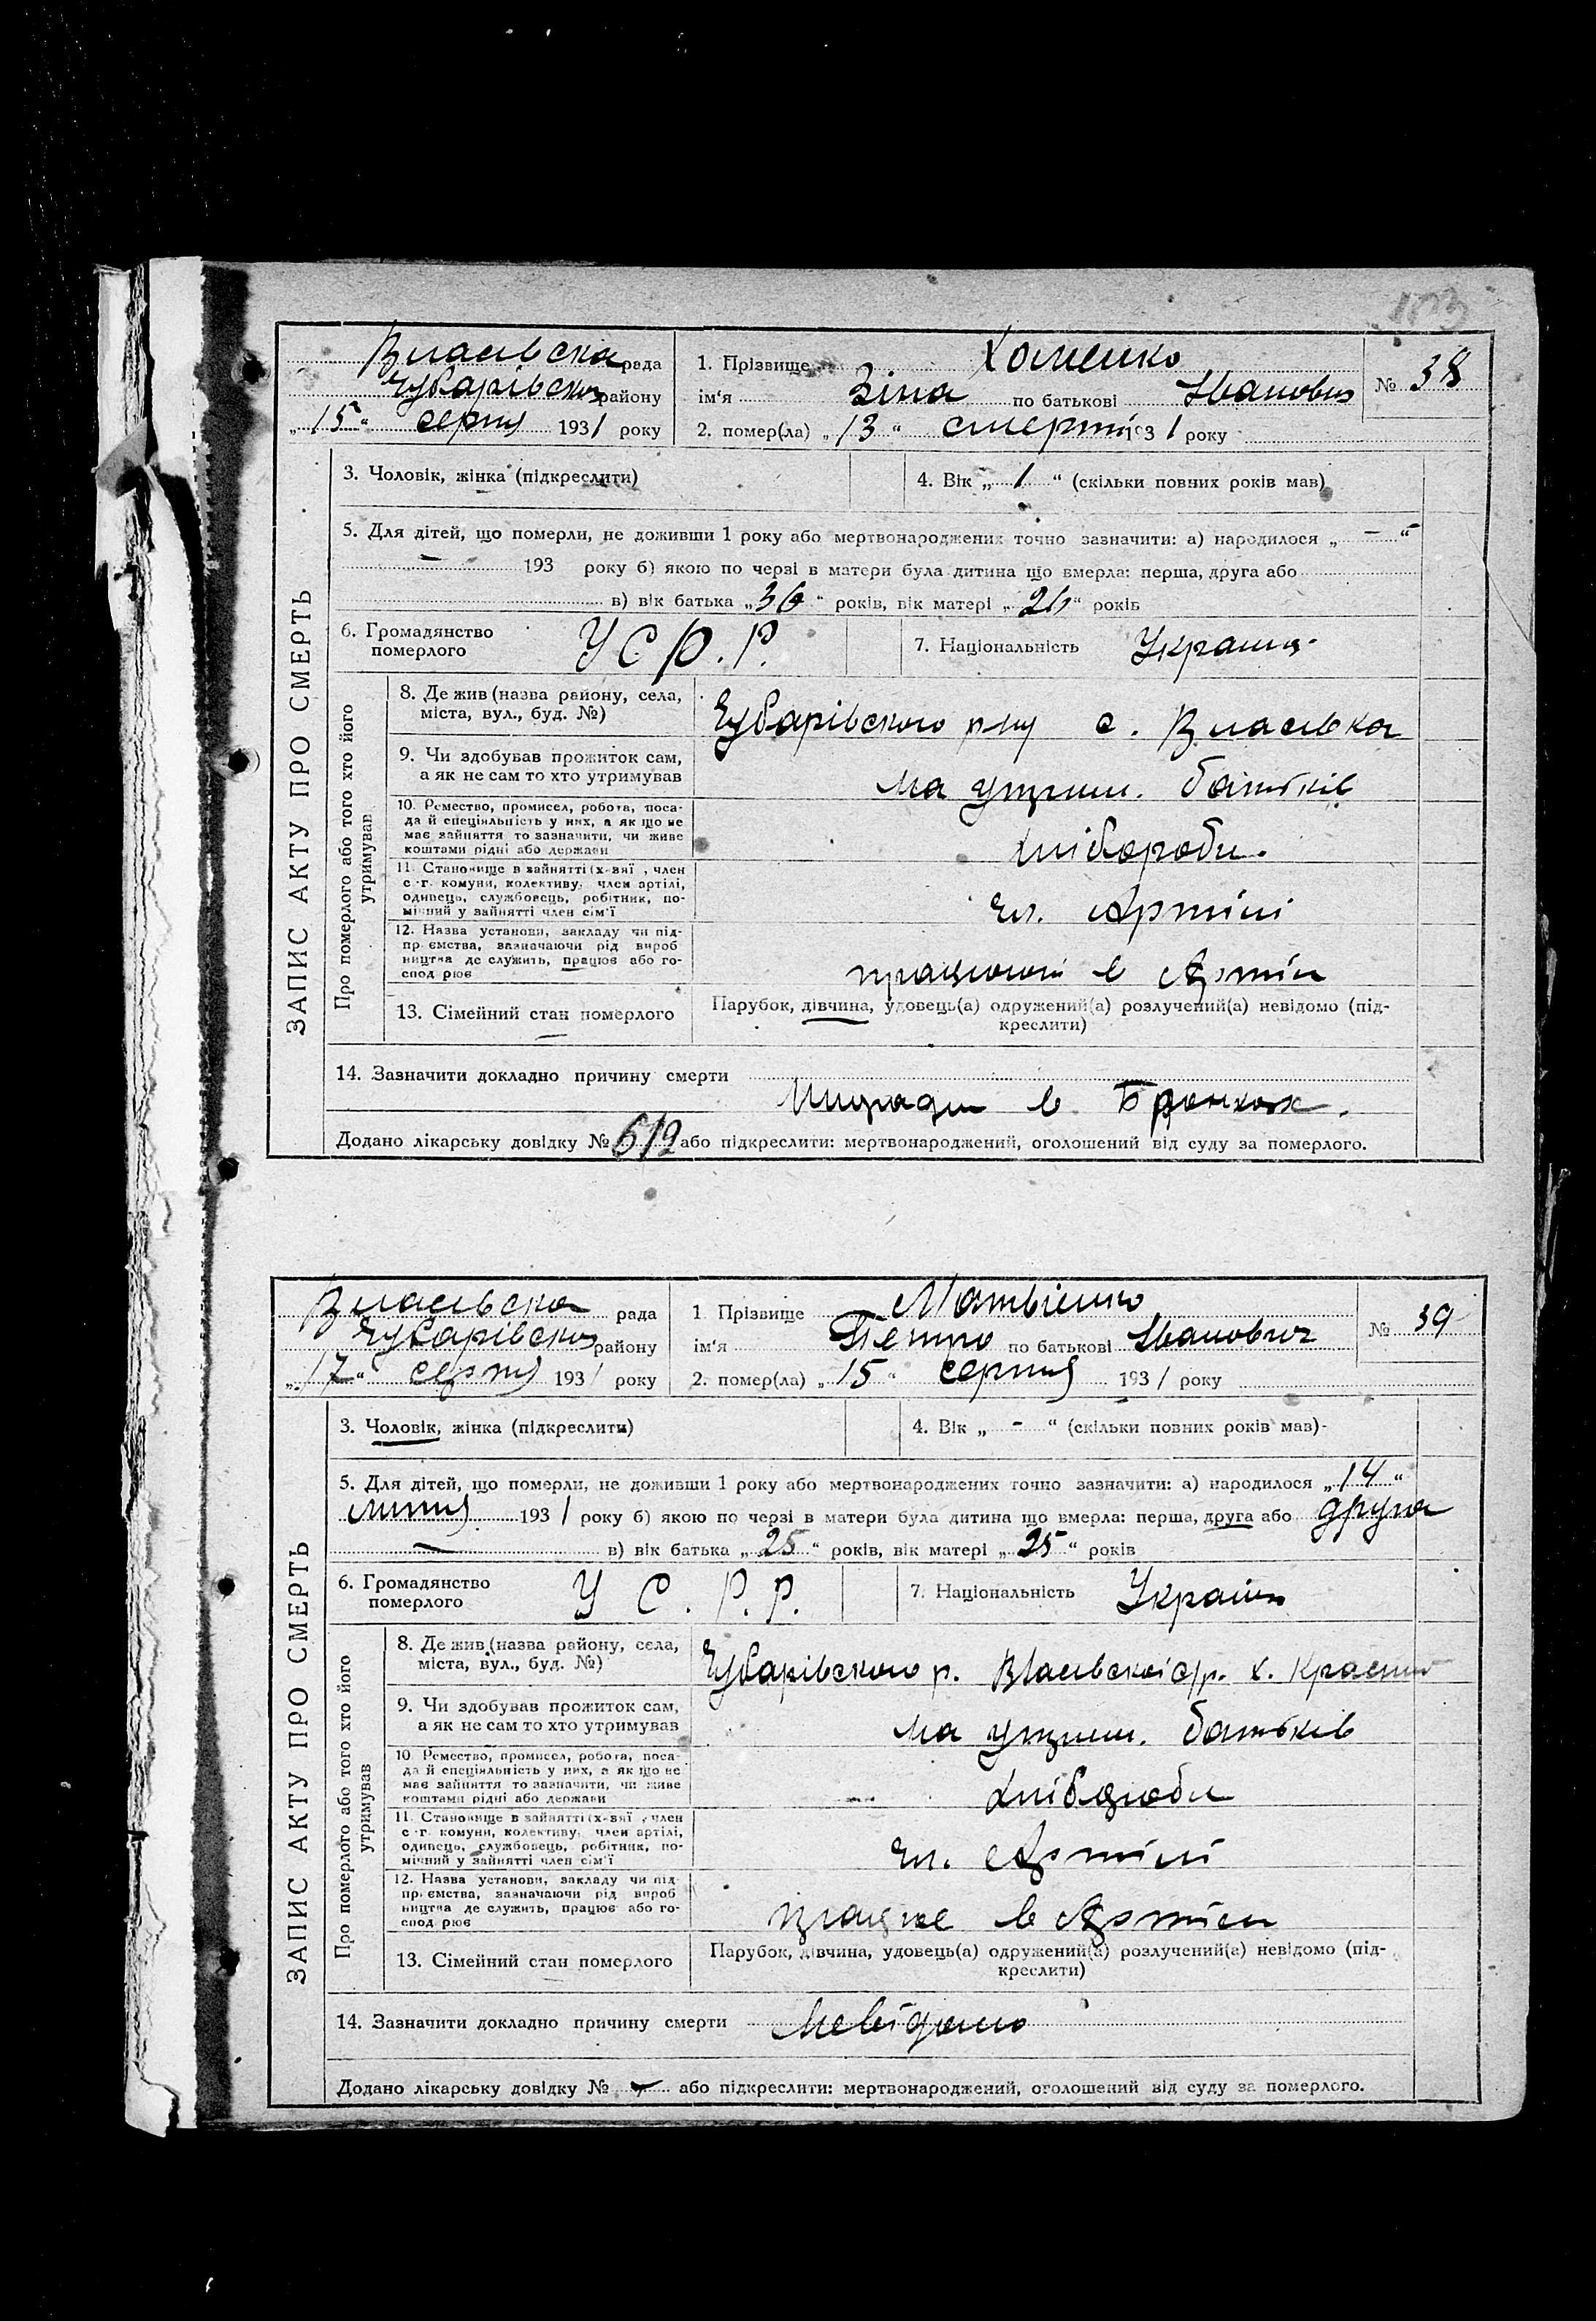 103
Власівська рада
Чубарівського району
„15“ серпня 1931 року
1. Прізвище Хоменко
ім‘я Зіна по батькові Іванович
№ 38
2. помер(ла) „13“ смерти 1931 року
ЗАПИС АКТУ ПРО СМЕРТЬ
3. Чоловік, жінка (підкреслити)
4. Вік „1“ (скільки повних років мав)
5. Для дітей, що померли, не доживши 1 року або мертвонароджених точно зазначити: а) народилося „ – “
– 193 року б) якою по черзі в матери була дитина що вмерла: перша, друга або
в) вік батька „36“ років, вік матері „26“ років
6. Громадянство померлого У С Р. Р.
7. Національність Україн
Про померлого або того хто його утримував
8. Де жив (назва району, села,
міста, вул., буд. №)
Чубарівського р-ну с. Власівка
9. Чи здобував прожиток сам,
а як не сам то хто утримував
на утрим. батьків
10. Ремество, промисел, робота, поса-
да й спеціяльність у них, а як що не
має зайняття то зазначити, чи живе
коштами рідні або держави
хлібороби.
11. Становище в зайнятті (х-вяї, член
с.-г. комуни, колективу, член артілі,
одинець, службовець, робітник, по-
мічний у зайнятті член сім‘ї
чл. Артілі
12. Назва установи, закладу чи під-
приємства, зазначаючи рід вироб
ництва де служить, працює або го-
спод рює
працюют в Артіл
13. Сімейний стан померлого
Парубок, дівчина, удовець(а) одружений(а) розлучений(а) невідомо (під-
креслити)
14. Зазначити докладно причину смерти
в Бронхах.
Додано лікарську довідку № 612 або підкреслити: мертвонароджений, оголошений від суду за померлого.
Власівська рада
Чубарівського району
„17“ серпня 1931 року
1 Прізвище Матвієнко
ім‘я Петро по батькові Іванович
№ 39
2. помер(ла) „15“ серпня 1931 року
ЗАПИС АКТУ ПРО СМЕРТЬ
3. Чоловік, жінка (підкреслити)
4. Вік „ - “ (скільки повних років мав)
5. Для дітей, що померли, не доживши 1 року або мертвонароджених точно зазначити: а) народилося „14“
липня 1931 року б) якою по черзі в матери була дитина що вмерла: перша, друга або друга
— в) вік батька „25“ років, вік матері „25“ років
6. Громадянство померлого У С. Р. Р.
7. Національність Україн
Про померлого або того хто його утримував
8. Де жив (назва району, села,
міста, вул., буд. №)
Чубарівського р. Власівської с/р. х.
9. Чи здобував прожиток сам,
а як не сам то хто утримував
на утрим. батьків
10 Ремество, промисел, робота, поса-
да й спеціяльність у них, а як що не
має зайняття то зазначити, чи живе
коштами рідні або держави
хлібороби
11. Становище в зайнятті (х-вяї, член
с.-г. комуни, колективу, член артілі,
одинець, службовець, робітник, по-
мічний у зайнятті член сім‘ї
чл. Артілі
12. Назва установи, закладу чи під
приємства, зазначаючи рід вироб
ництва де служить, працює або го-
спод рює
працює в Артіли
13. Сімейний стан померлого
Парубок, дівчина, удовець(а) одружений(а) розлучений(а) невідомо (під-
креслити)
14. Зазначити докладно причину смерти Невідомо
Додано лікарську довідку № або підкреслити: мертвонароджений, оголошений від суду за померлого.